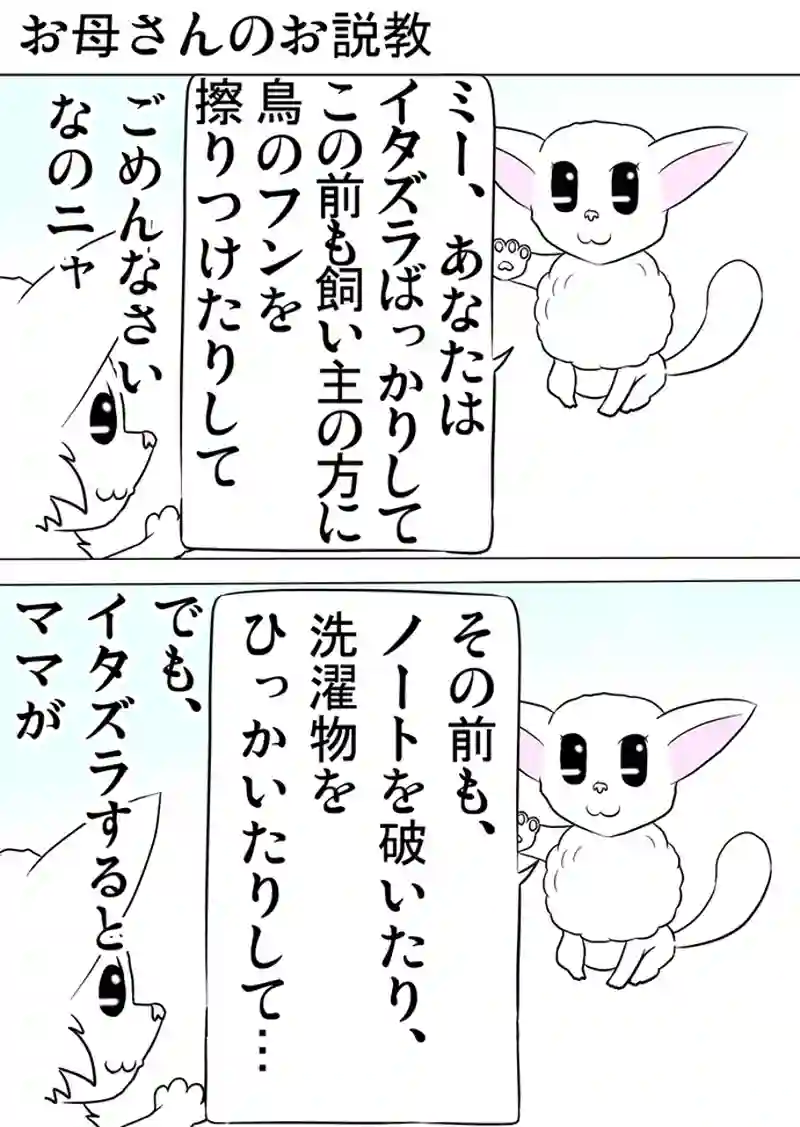 お母さんのお説教
ミー、あなたは
イタズラばっかりして
この前も飼い主の方に
鳥のフンを
擦りつけたりして
ごめんなさい
なのニャ
その前も、
ノートを破いたり、
洗濯物を
ひっかいたりして…
でも、
イタズラすると
ママが